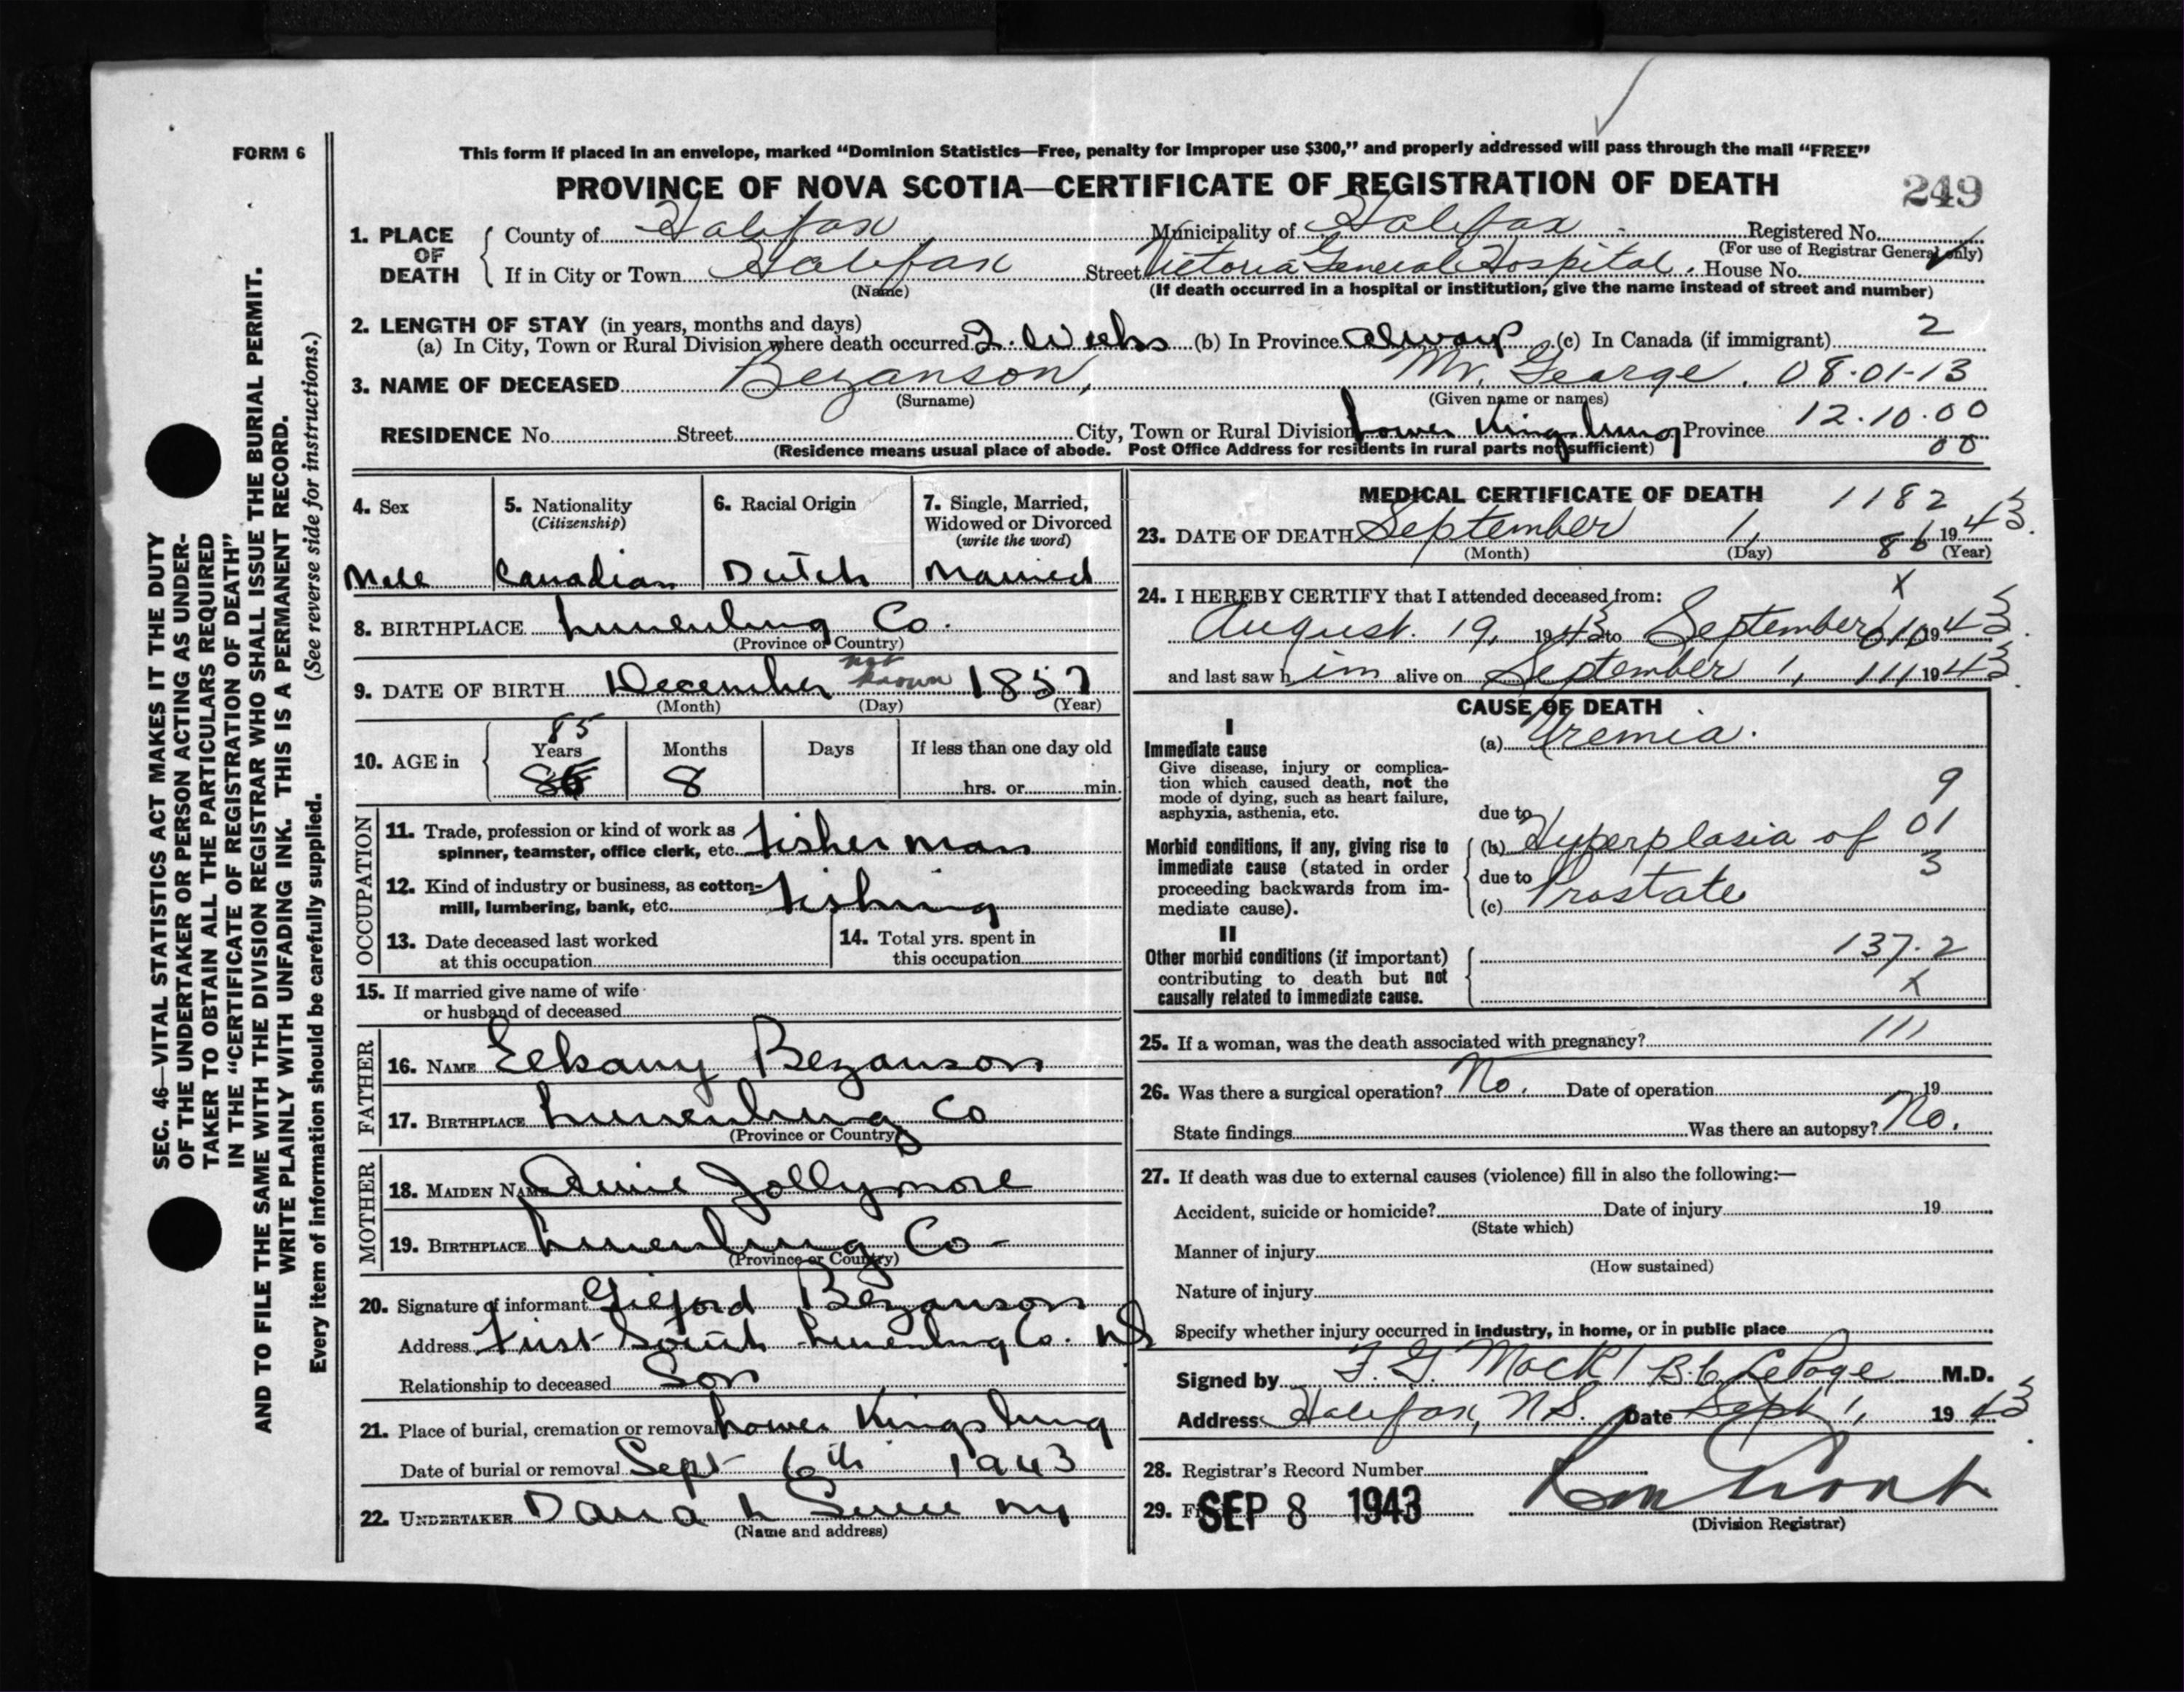 FORM 6
This form if placed in an envelope, marked “Dominion Statistics—Free, penalty for improper use $300,” and properly addressed will pass through the mail “FREE”
PROVINCE OF NOVA SCOTIA—CERTIFICATE OF REGISTRATION OF DEATH 249
1. PLACE OF DEATH County of Halifax Municipality of Halifax Registered No.
(For use of Registrar General only)
If in City or Town Halifax Street Victoria General Hospital. House No.
(Name) (If death occurred in a hospital or institution, give the name instead of street and number)
2. LENGTH OF STAY (in years, months and days)
(a) In City, Town or Rural Division where death occurred 2 weeks (b) In Province always (c) In Canada (if immigrant) 2
3. NAME OF DECEASED Bezanson, Mr. George. 08-01-13
(Surname) (Given name or names)
12-10-00
RESIDENCE No. Street City, Town or Rural Division Lower Kingsburg Province
(Residence means usual place of abode. Post Office Address for residents in rural parts not sufficient) 00
SEC. 46—VITAL STATISTICS ACT MAKES IT THE DUTY
OF THE UNDERTAKER OR PERSON ACTING AS UNDER-
TAKER TO OBTAIN ALL THE PARTICULARS REQUIRED
IN THE “CERTIFICATE OF REGISTRATION OF DEATH”
AND TO FILE THE SAME WITH THE DIVISION REGISTRAR WHO SHALL ISSUE THE BURIAL PERMIT.
WRITE PLAINLY WITH UNFADING INK. THIS IS A PERMANENT RECORD.
Every item of information should be carefully supplied. (See reverse side for instructions.)
4. Sex 5. Nationality 6. Racial Origin 7. Single, Married,
(Citizenship) Widowed or Divorced
(write the word)
Male Canadian Dutch Married
8. BIRTHPLACE Lunenburg Co.
(Province or Country)
not
9. DATE OF BIRTH December known 1857
(Month) (Day) (Year)
85
10. AGE in Years Months Days If less than one day old
86 8 hrs. or min.
OCCUPATION
11. Trade, profession or kind of work as
spinner, teamster, office clerk, etc. Fisherman
12. Kind of industry or business, as cotton-
mill, lumbering, bank, etc. Fishing
13. Date deceased last worked 14. Total yrs. spent in
at this occupation this occupation
15. If married give name of wife
or husband of deceased
FATHER
16. NAME Bezanson
17. BIRTHPLACE Lunenburg Co
(Province or Country)
MOTHER
18. MAIDEN NAME Annie Jollymore
19. BIRTHPLACE Lunenburg Co
(Province or Country)
20. Signature of informant Bezanson
Address First South Lunenburg Co. NS
Relationship to deceased Son
21. Place of burial, cremation or removal Lower Kingsburg
Date of burial or removal Sept 6th 1943
22. UNDERTAKER
(Name and address)
MEDICAL CERTIFICATE OF DEATH 1182
23. DATE OF DEATH September 1, 1943.
(Month) (Day) 86 (Year)
24. I HEREBY CERTIFY that I attended deceased from: x
August. 19, 1943 to September 010 1943.
and last saw him alive on September 1, 111 1943.
CAUSE OF DEATH
I
Immediate cause (a) Uremia.
Give disease, injury or complica-
tion which caused death, not the
mode of dying, such as heart failure,
asphyxia, asthenia, etc. due to 9
Morbid conditions, if any, giving rise to (b) Hyperplasia of 01
immediate cause (stated in order
proceeding backwards from im- due to Prostate 3
mediate cause). (c)
II
Other morbid conditions (if important) 137-2
contributing to death but not
causally related to immediate cause. x
25. If a woman, was the death associated with pregnancy? 111
26. Was there a surgical operation? No. Date of operation 19
State findings Was there an autopsy? No.
27. If death was due to external causes (violence) fill in also the following:—
Accident, suicide or homicide? Date of injury 19
(State which)
Manner of injury
(How sustained)
Nature of injury
Specify whether injury occurred in industry, in home, or in public place
Signed by F. G. Mack / B.C. LePage M.D.
Address Halifax, N.S. Date Sept 1, 1943.
28. Registrar's Record Number
29. SEP 8 1943
(Division Registrar)